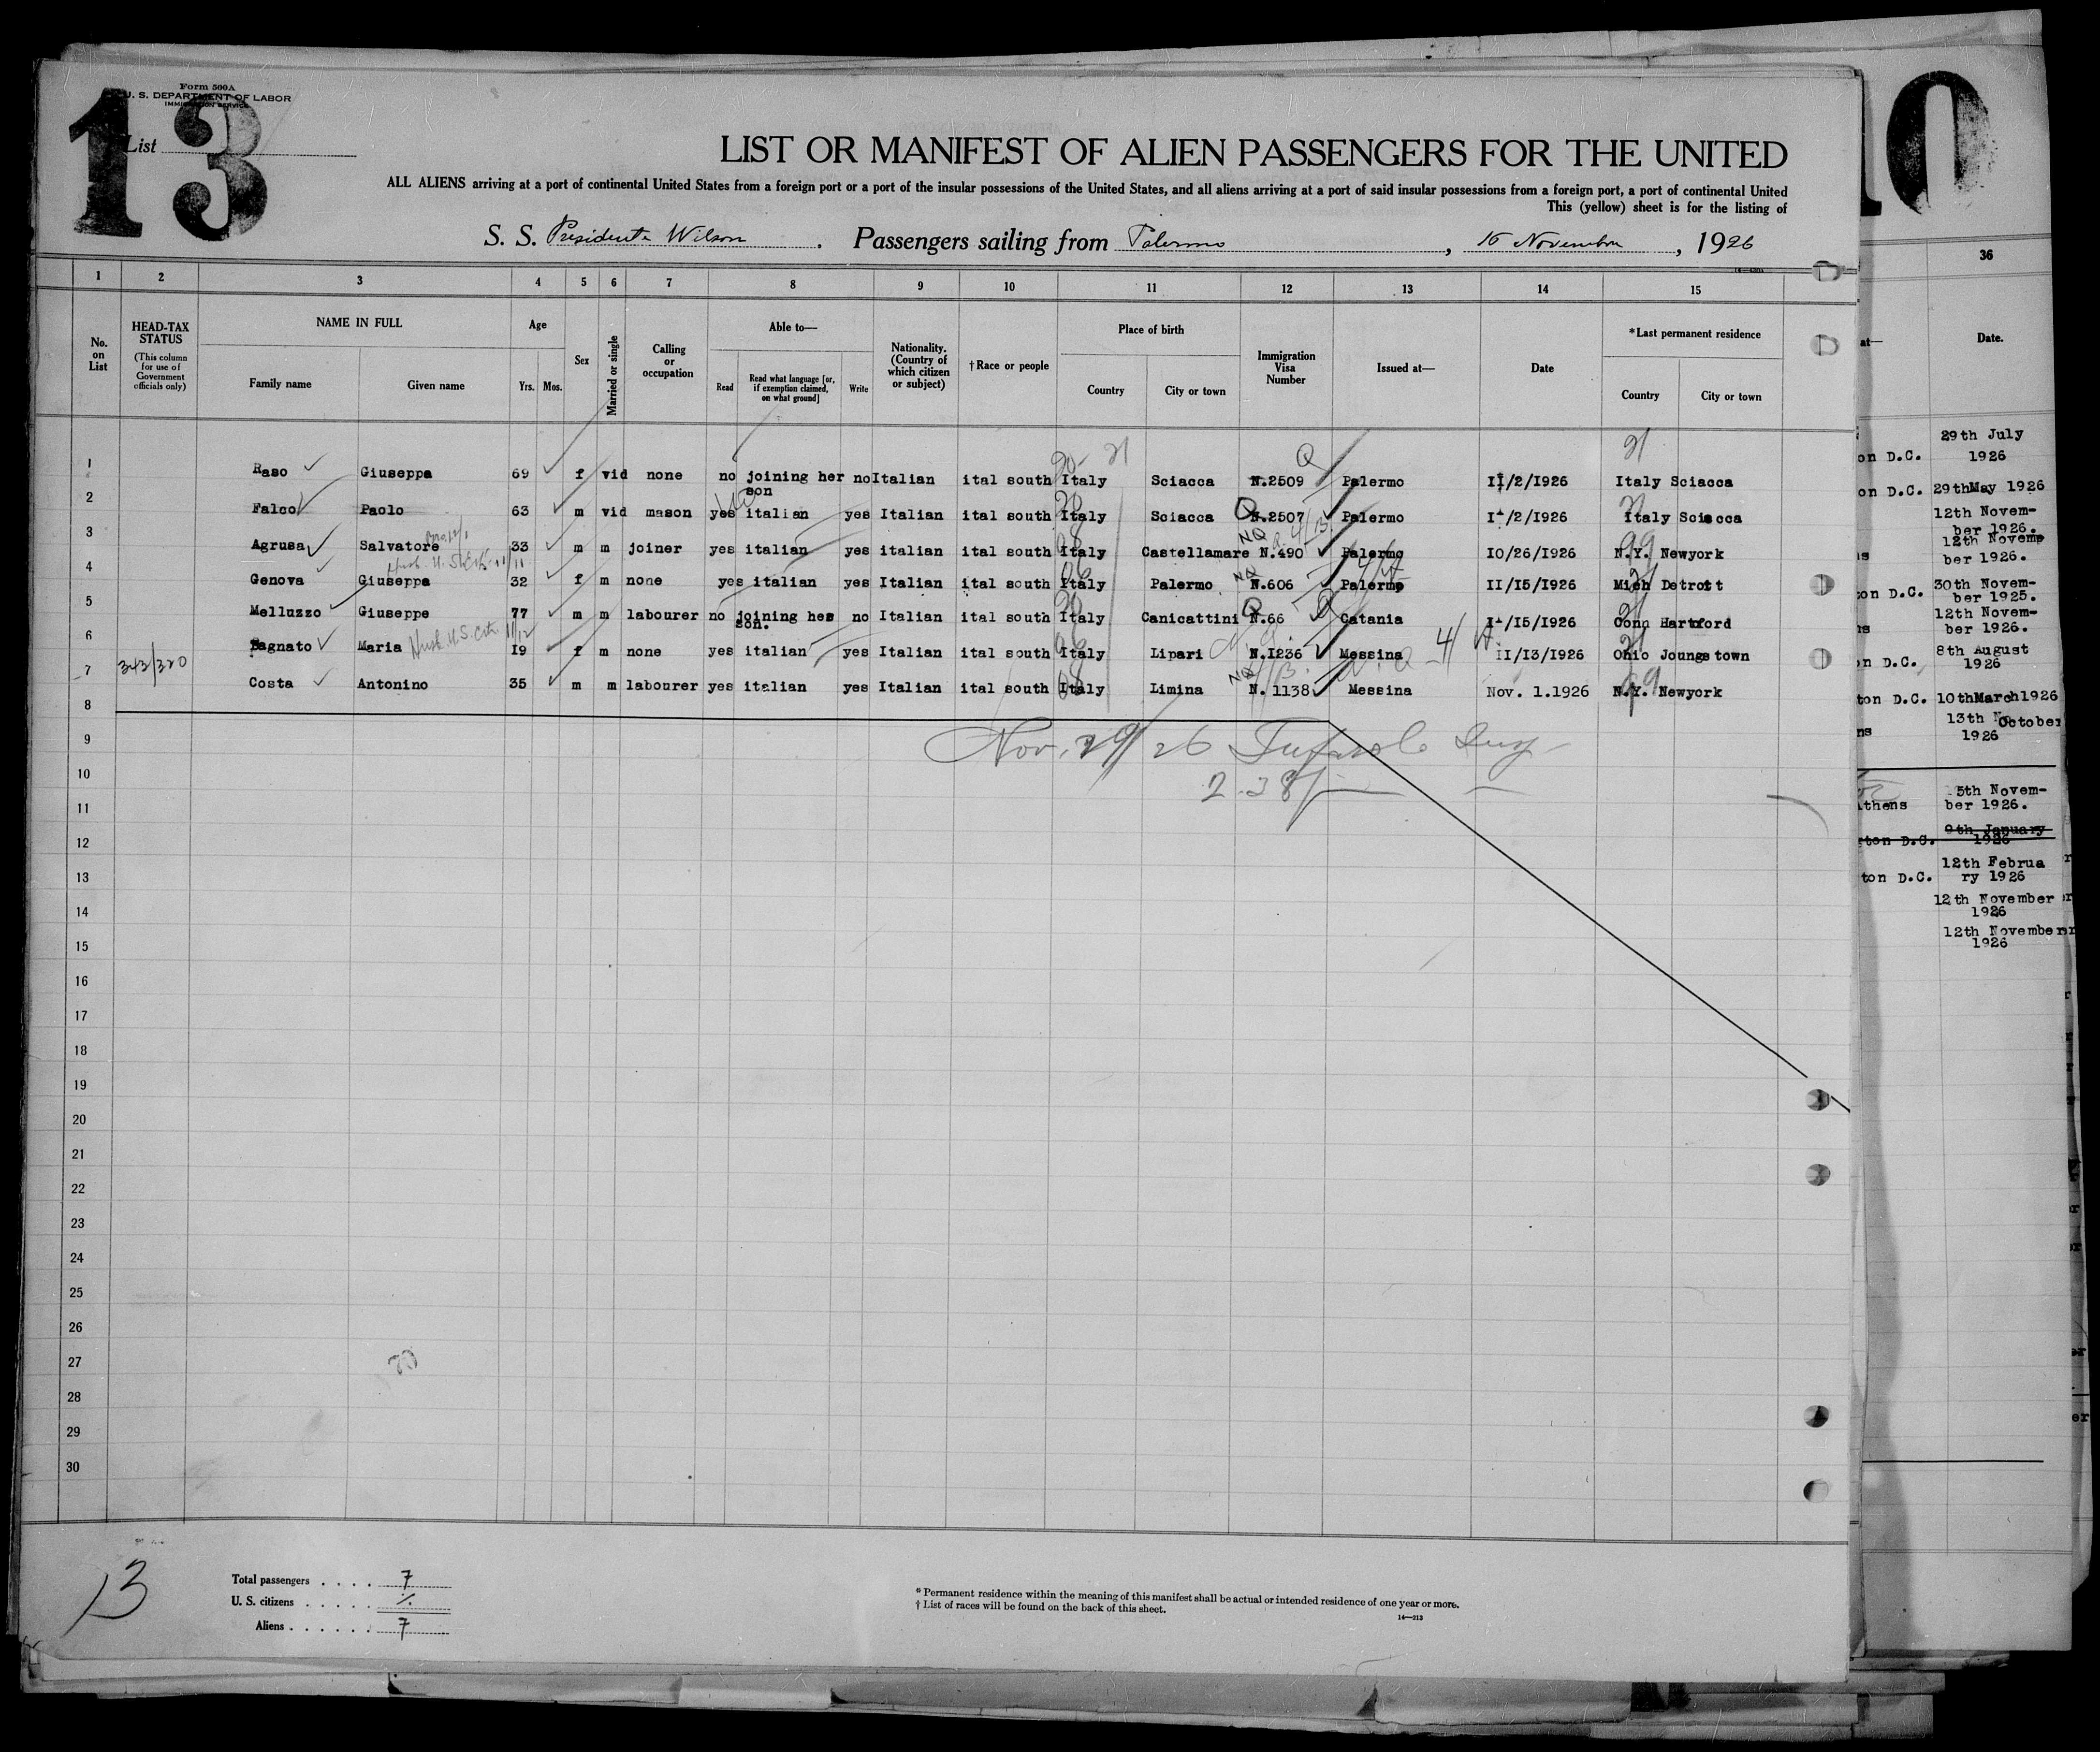 13
Form 500A
U. S. DEPARTMENT OF LABOR
IMMIGRATION SERVICE
List
10
LIST OR MANIFEST OF ALIEN PASSENGERS FOR THE UNITED
ALL ALIENS arriving at a port of continental United States from a foreign port or a port of the insular possessions of the United States, and all aliens arriving at a port of said insular possessions from a foreign port, a port of continental United
This (yellow) sheet is for the listing of
S. S. Presidente Wilson. Passengers sailing from Palermo, 16 Novembre, 1926
1 2 3 4 5 6 7 8 9 10 11 12 13 14 15
No. on List
HEAD-TAX STATUS
(This column for use of Government officials only)
NAME IN FULL
Family name
Given name
Age
Yrs. Mos.
Sex
Married or single
Calling or occupation
Able to—
Read
Read what language [or, if exemption claimed, on what ground]
Write
Nationality. (Country of which citizen or subject)
†Race or people
Place of birth
Country
City or town
Immigration Visa Number
Issued at—
Date
*Last permanent residence
Country
City or town
1 Raso Giuseppa 69 f vid none no joining her son no Italian ital south Italy Sciacca N.2509 Palermo II/2/I926 Italy Sciacca
2 Falco Paolo 63 m vid mason yes italian yes Italian ital south Italy Sciacca N.2507 Palermo I-/2/I926 Italy Sciacca
3 Agrusa Salvatore 33 m m joiner yes italian yes italian ital south Italy Castellamare N.490 Palermo I0/26/I926 N.Y. Newyork
4 Genova Giuseppa 32 f m none yes italian yes Italian ital south Italy Palermo N.606 Palermo II/I5/I926 Mich Detroit
5 Melluzzo Giuseppe 77 m m labourer no joining hes son. no Italian ital south Italy Canicattini N.66 Catania I-/I5/I926 Conn Hartford
6 Bagnato Maria Husb. U.S. Cit. 11/12 I9 f m none yes italian yes Italian ital south Italy Lipari N.I236 Messina II/I3/I926 Ohio Joungstown
7 343/320 Costa Antonino 35 m m labourer yes italian yes Italian ital south Italy Limina N. 1138 Messina Nov. 1.1926 N.Y. Newyork
8
9
Nov. 29/26
10
2.38
11
12
13
14
15
16
17
18
19
20
21
22
23
24
25
26
27
28
29
30
13
Total passengers . . . . 7
U. S. citizens . . . . .
Aliens . . . . . . 7
* Permanent residence within the meaning of this manifest shall be actual or intended residence of one year or more.
† List of races will be found on the back of this sheet.
14—213
36
at—
Date.
29th July
on D.C. 1926
on D.C. 29thMay 1926
12th Novem-
ber 1926.
12th Novemb
ber 1926.
on D.C. 30th Novem-
ber 1925.
12th Novem-
ber 1926.
n D.C. 8th August
1926
ton D.C. 10thMarch1926
13th October
ns 1926
5th Novem-
Athens ber 1926.
9th January
ton D.C. 1926
12th Februa
ton D.C. ry 1926
12th November
1926
12th November
1926